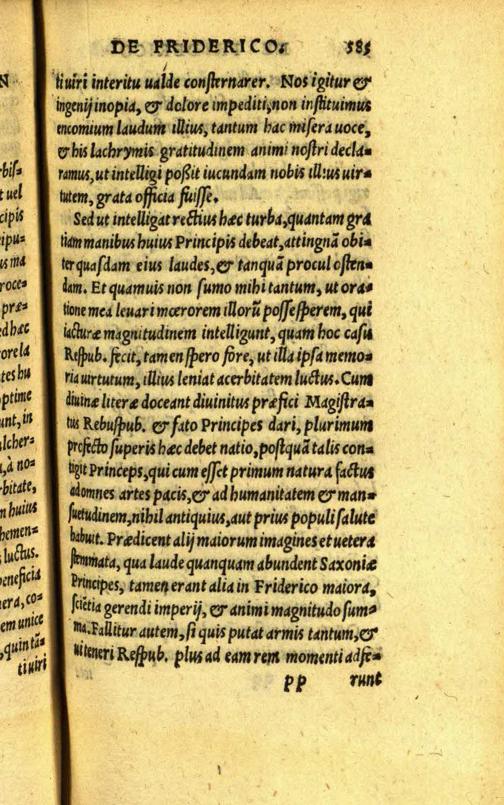 DE FRIDERICO. 585
tiuiri interitu ualde consternarer. Nos igitur &
ingenij inopia, & dolore impediti, non instituimus
encomium laudum illius, tantum hac misera uoce,
& his lachrymis gratitudinem animi nostri decla=
ramus, ut intelligi poßit iucundam nobis illius uir=
tutem, grata officia fuisse.
Sed ut intelligat rectius hæc turba, quantam gra
tiam manibus huius Principis debeat, attingnā obi=
ter quasdam eius laudes, & tanquā procul osten=
dam. Et quamuis non sumo mihi tantum, ut ora=
tione mea leuari mœrorem illorū posse sperem, qui
iacturæ magnitudinem intelligunt, quam hoc casu
Respub. fecit, tamen spero fore, ut illa ipsa memo=
ria uirtutum, illius leniat acerbitatem luctus. Cum
diuinæ literæ doceant diuinitus præfici Magistra=
tus Rebuspub. & fato Principes dari, plurimum
profecto superis hæc debet natio, postquā talis con=
tigit Princeps, qui cum esset primum natura factus
ad omnes artes pacis, & ad humanitatem & man=
suetudinem, nihil antiquius, aut prius populi salute
habuit. Prædicent alij maiorum imagines et uetera
stemmata, qua laude quanquam abundent Saxoniæ
Principes, tamen erant alia in Friderico maiora,
sciētia gerendi imperij, & animi magnitudo sum=
ma. Fallitur autem, si quis putat armis tantum, &
ui teneri Respub. plus ad eam rem momenti adfe=
pp runt
N
rbis=
t uel
cipis
ipu=
us ma
roce=
præ=
ed hæc
ore la
tes hu
ptime
unt, in
lcher=
, à no=
rbitate,
n huius
hemen=
luctus.
beneficia
nera, co=
em unice
, quin tā=
tiuiri